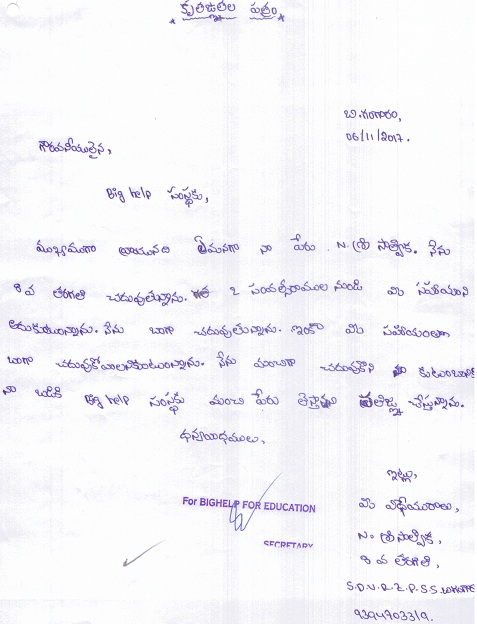 కృతజ్ఞతల పత్రం
బి.గంగారం,
06/11/2017.
గౌరవనీయులైన,
Big help సంస్థకు,
ముఖ్యముగా రాయునది ఏమనగా నా పేరు . N. శ్రీ సాత్విక. నేను
8 వ తరగతి చదువుతున్నాను. గత 2 సంవత్సరాముల నుండి మీ సహాయాన్ని
అందుకుంటున్నాను. నేను బాగా చదువుతున్నాను. ఇంకా మీ సహాయంతో
బాగా చదువుకోవాలనుకుంటున్నాను. నేను మంచిగా చదువుకొని నా
నా బడికి Big help సంస్థకు మంచి పేరు తెస్తానని ప్రతిజ్ఞ చేస్తున్నాను.
ధన్యవాదములు,
ఇట్లు,
మీ విధేయురాలు,
N. శ్రీ సాత్విక,
8 వ తరగతి,
For BIGHELP FOR EDUCATION
SECRETARY
S.D.V.R.Z.P.S.S
9394703319.